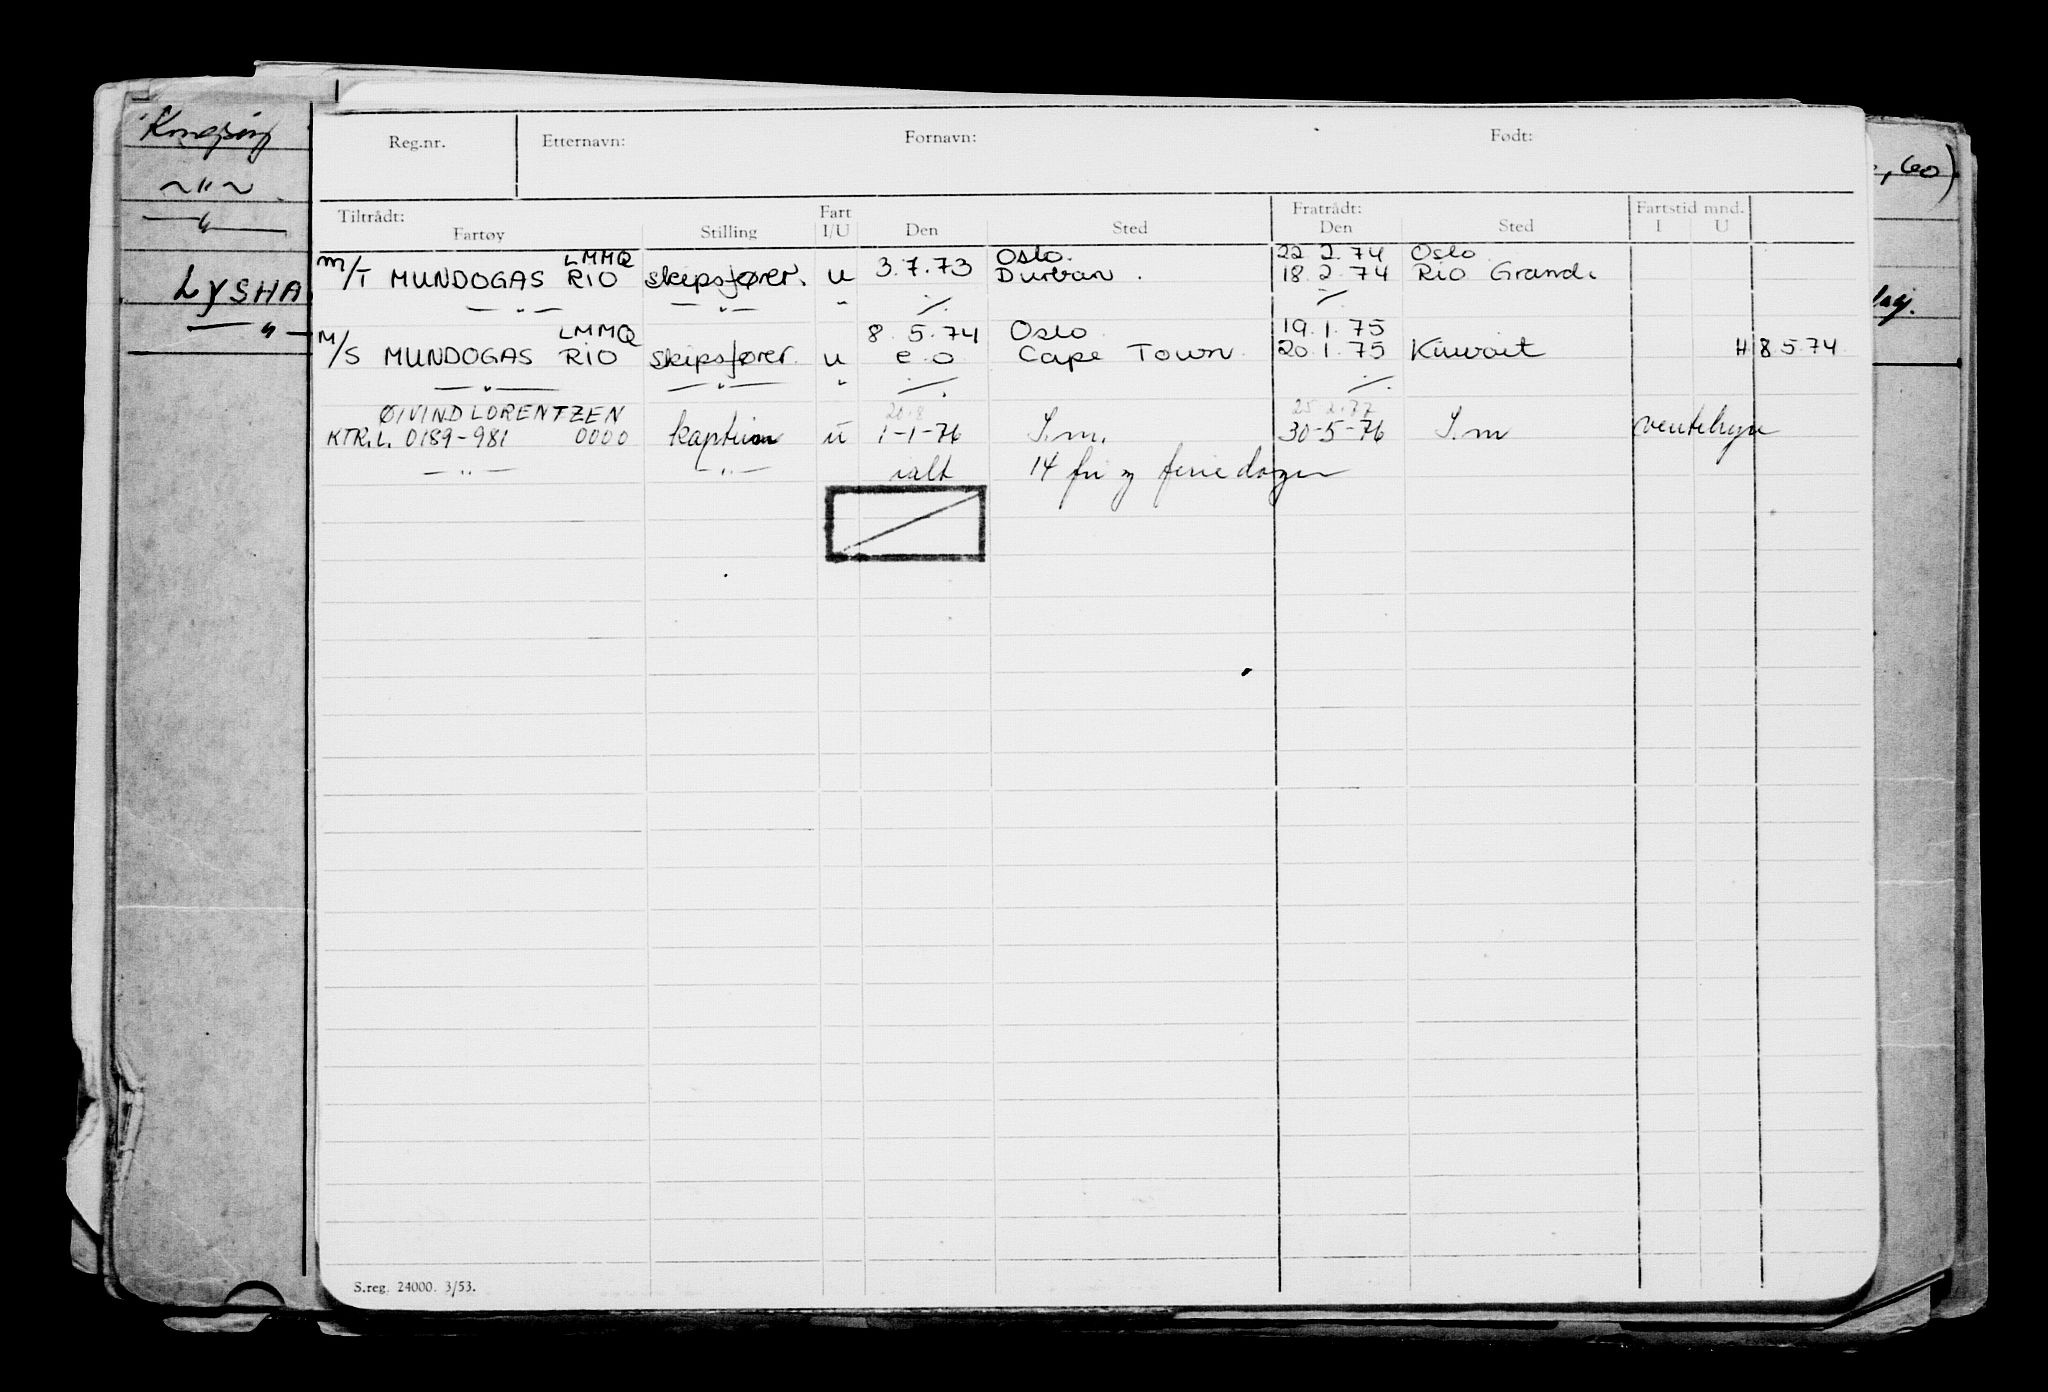 Reg.nr. Etternavn: Fornavn: Født:
Tiltrådt: Fart Fratrådt: Fartstid mnd.
Fartøy Stilling I/U Den Sted Den Sted I U
LMMQ Oslo. 22.2.74 Oslo
M/T MUNDOGAS RIO skipsfører. u 3.7.73 Durban. 18.2.74 Rio Grand.
— " — — " — " ./. ./.
LMMQ 8.5.74 Oslo 19.1.75
M/S MUNDOGAS RIO skipsfører. u e.o Cape Town 20.1.75 Kuwait H 8.5.74
— " — — " — " ./. ./.
ØIVIND LORENTZEN 20.8 25.2.77
KTR.L. 0189-981 0000 kaptein u 1-1-76 S.m. 30-5-76 S.m ventehyre
— " — — " — ialt 14 fri og feriedager
S.reg. 24000. 3/53.
— " —
— " —
LYSHA
— " —
, 60)